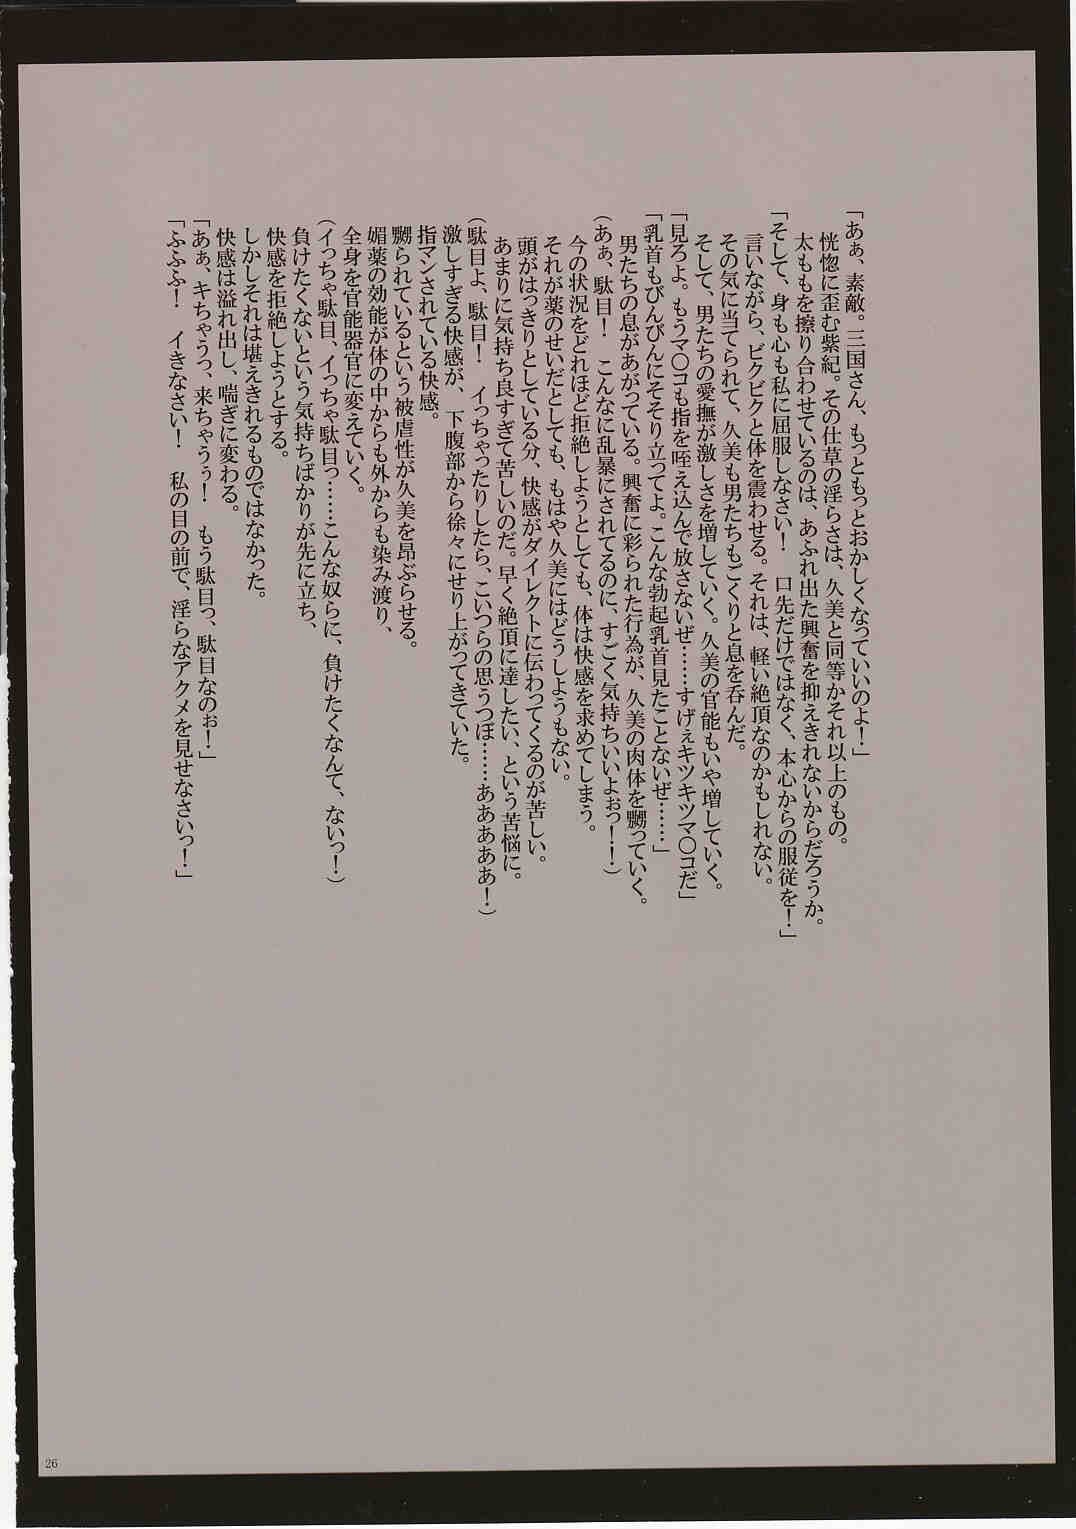 「あぁ、素敵。三国さん、もっともっとおかしくなっていいのよ！」
恍惚に歪む紫紀。その仕草の淫らさは、久美と同等かそれ以上のもの。
太ももを擦り合わせているのは、あふれ出た興奮を抑えきれないからだろうか。
「そして、身も心も私に屈服しなさい！　口先だけではなく、本心からの服従を！」
言いながら、ビクビクと体を震わせる。それは、軽い絶頂なのかもしれない。
その気に当てられて、久美も男たちもごくりと息を呑んだ。
そして、男たちの愛撫が激しさを増していく。久美の官能もいや増していく。
「見ろよ。もうマ〇コも指を咥え込んで放さないぜ……すげぇキツキツマ〇コだ」
「乳首もびんびんにそそり立ってよ。こんな勃起乳首見たことないぜ……」
男たちの息があがっている。興奮に彩られた行為が、久美の肉体を嬲っていく。
（あぁ、駄目！　こんなに乱暴にされてるのに、すごく気持ちいいよぉっ！！）
今の状況をどれほど拒絶しようとしても、体は快感を求めてしまう。
それが薬のせいだとしても、もはや久美にはどうしようもない。
頭がはっきりとしている分、快感がダイレクトに伝わってくるのが苦しい。
あまりに気持ち良すぎて苦しいのだ。早く絶頂に達したい、という苦悩に。
（駄目よ、駄目！　イっちゃったりしたら、こいつらの思うつぼ……あああああ！）
激しすぎる快感が、下腹部から徐々にせり上がってきていた。
指マンされている快感。
嬲られているという被虐性が久美を昂ぶらせる。
媚薬の効能が体の中からも外からも染み渡り、
全身を官能器官に変えていく。
（イっちゃ駄目、イっちゃ駄目っ……こんな奴らに、負けたくなんて、ないっ！）
負けたくないという気持ちばかりが先に立ち、
快感を拒絶しようとする。
しかしそれは堪えきれるものではなかった。
快感は溢れ出し、喘ぎに変わる。
「あぁ、キちゃうっ、来ちゃうぅ！　もう駄目っ、駄目なのぉ！」
「ふふふ！　イきなさい！　私の目の前で、淫らなアクメを見せなさいっ！」
26